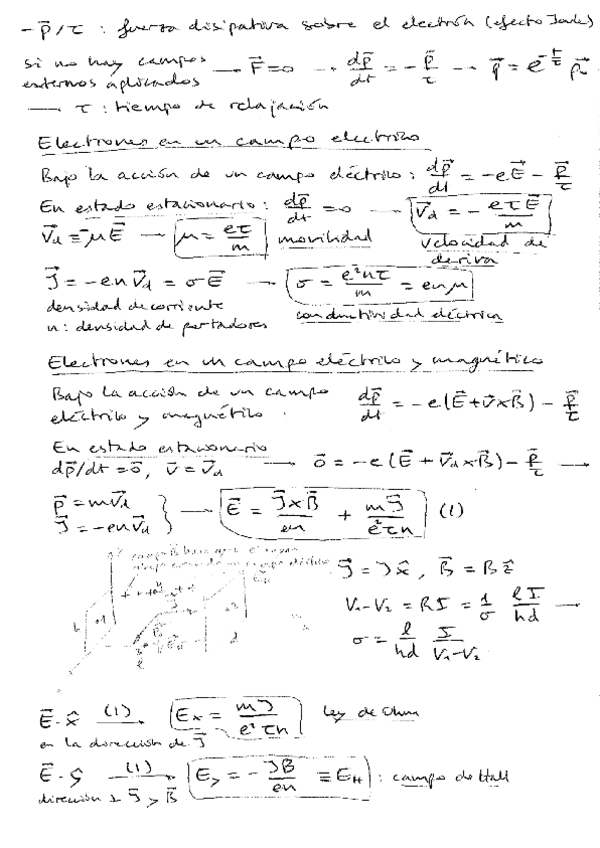 - p⃗/τ : fuerza disipativa sobre el electrón (efecto Joule)
si no hay campos externos aplicados → F⃗=0 → dp⃗/dt = - p⃗/τ → p⃗ = e^(-t/τ) p⃗
→ τ : tiempo de relajación
Electrones en un campo eléctrico
Bajo la acción de un campo eléctrico : dp⃗/dt = -eE⃗ - p⃗/τ
En estado estacionario : dp⃗/dt = 0 → v⃗d = - eτE⃗/m
v⃗d = -μE⃗ → μ = eτ/m movilidad velocidad de deriva
J⃗ = -en v⃗d = σE⃗ → σ = e²nτ/m = enμ
densidad de corriente
n : densidad de portadores conductividad eléctrica
Electrones en un campo eléctrico y magnético
Bajo la acción de un campo eléctrico y magnético. dp⃗/dt = -e(E⃗+v⃗×B⃗) - p⃗/τ
En estado estacionario
dp⃗/dt = 0⃗, v⃗ = v⃗d → 0⃗ = -e(E⃗ + v⃗d×B⃗) - p⃗/τ →
p⃗ = mv⃗d
J⃗ = -env⃗d } → E⃗ = J⃗×B⃗/en + mJ⃗/e²τn (1)
J⃗ = Jx̂, B⃗ = Bẑ
V1-V2 = RI = 1/σ lI/hd →
σ = l/hd I/(V1-V2)
E⃗·x̂ (1)→ Ex = mJ/e²τn ley de Ohm
en la dirección de J⃗
E⃗·ŷ (1)→ Ey = - JB/en ≡ EH : campo de Hall
dirección ⊥ J⃗ y B⃗